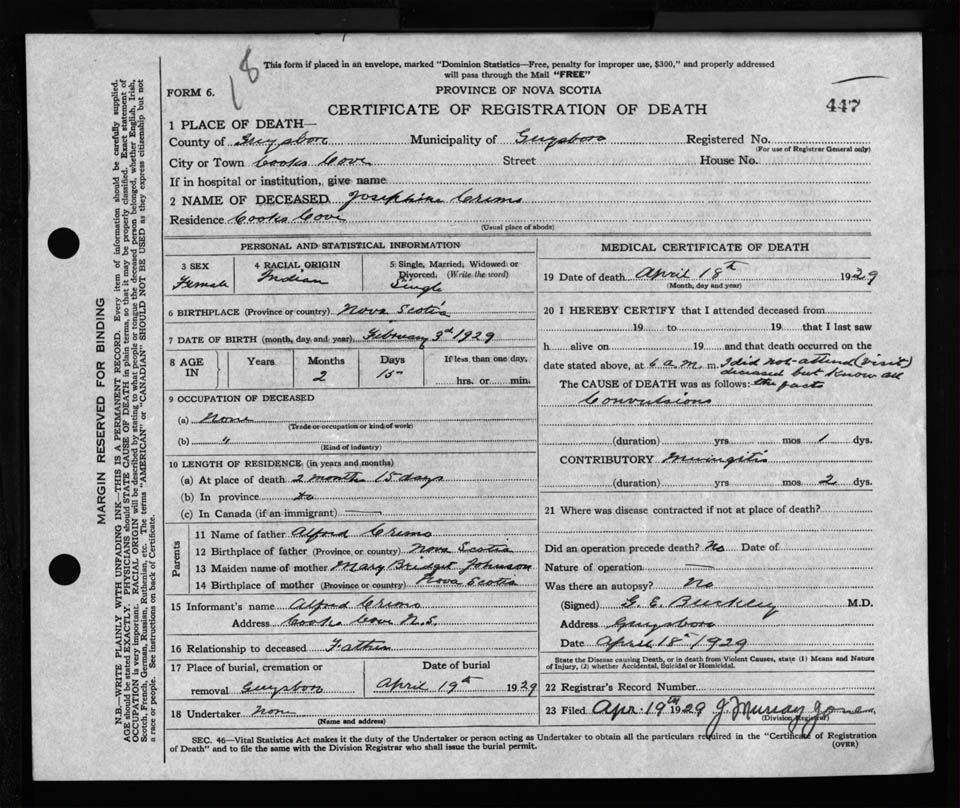 18
This form if placed in an envelope, marked "Dominion Statistics—Free, penalty for improper use, $300," and properly addressed
will pass through the Mail "FREE"
FORM 6.
PROVINCE OF NOVA SCOTIA
CERTIFICATE OF REGISTRATION OF DEATH
447
1 PLACE OF DEATH—
County of Guysboro Municipality of Guysboro Registered No.
(For use of Registrar General only)
City or Town Cooks Cove Street House No.
If in hospital or institution, give name
2 NAME OF DECEASED Josephine Crims
Residence Cooks Cove
(Usual place of abode)
PERSONAL AND STATISTICAL INFORMATION
3 SEX 4 RACIAL ORIGIN 5 Single, Married, Widowed or
Divorced. (Write the word)
Female Indian Single
6 BIRTHPLACE (Province or country) Nova Scotia
7 DATE OF BIRTH (month, day and year) February 3rd 1929
8 AGE IN Years Months Days If less than one day,
2 15 hrs. or min.
9 OCCUPATION OF DECEASED
(a) None
(Trade or occupation or kind of work)
(b) "
(Kind of industry)
10 LENGTH OF RESIDENCE (in years and months)
(a) At place of death 2 months 15 days
(b) In province do
(c) In Canada (if an immigrant)
Parents
11 Name of father Alfred Crims
12 Birthplace of father (Province or country) Nova Scotia
13 Maiden name of mother Mary Bridget Johnson
14 Birthplace of mother (Province or country) Nova Scotia
15 Informant's name Alfred Crims
Address Cooks Cove N.S.
16 Relationship to deceased Father
17 Place of burial, cremation or Date of burial
removal Guysboro April 19th 1929
18 Undertaker None
(Name and address)
MEDICAL CERTIFICATE OF DEATH
19 Date of death April 18th 1929
(Month, day and year)
20 I HEREBY CERTIFY that I attended deceased from
19 to 19 that I last saw
h alive on 19 and that death occurred on the
date stated above, at 6 a.m. m. I did not attend (visit)
deceased but know all
The CAUSE of DEATH was as follows: the facts
Convulsions
(duration) yrs mos 1 dys.
CONTRIBUTORY Miningitis
(duration) yrs mos 2 dys.
21 Where was disease contracted if not at place of death?
Did an operation precede death? No Date of
Nature of operation
Was there an autopsy? No
(Signed) G. E. Buckley M.D.
Address Guysboro
Date April 18th 1929
State the Disease causing Death, or in death from Violent Causes, state (1) Means and Nature
of Injury, (2) whether Accidental, Suicidal or Homicidal.
22 Registrar's Record Number
23 Filed Apr. 19th 1929 J. Murray
(Division Registrar)
SEC. 46—Vital Statistics Act makes it the duty of the Undertaker or person acting as Undertaker to obtain all the particulars required in the "Certificate of Registration
of Death" and to file the same with the Division Registrar who shall issue the burial permit.
(OVER)
MARGIN RESERVED FOR BINDING
N.B.—WRITE PLAINLY WITH UNFADING INK—THIS IS A PERMANENT RECORD. Every item of information should be carefully supplied.
AGE should be stated EXACTLY. PHYSICIANS should STATE CAUSE OF DEATH in plain terms, so that it may be properly classified. Exact statement of
OCCUPATION is very important. RACIAL ORIGIN will be described by stating to what people or tongue the deceased person belonged, whether English, Irish,
Scotch, French, German, Russian, Ruthenian, etc. The terms "AMERICAN" or "CANADIAN" SHOULD NOT BE USED as they express citizenship but not
a race or people. See instructions on back of Certificate.